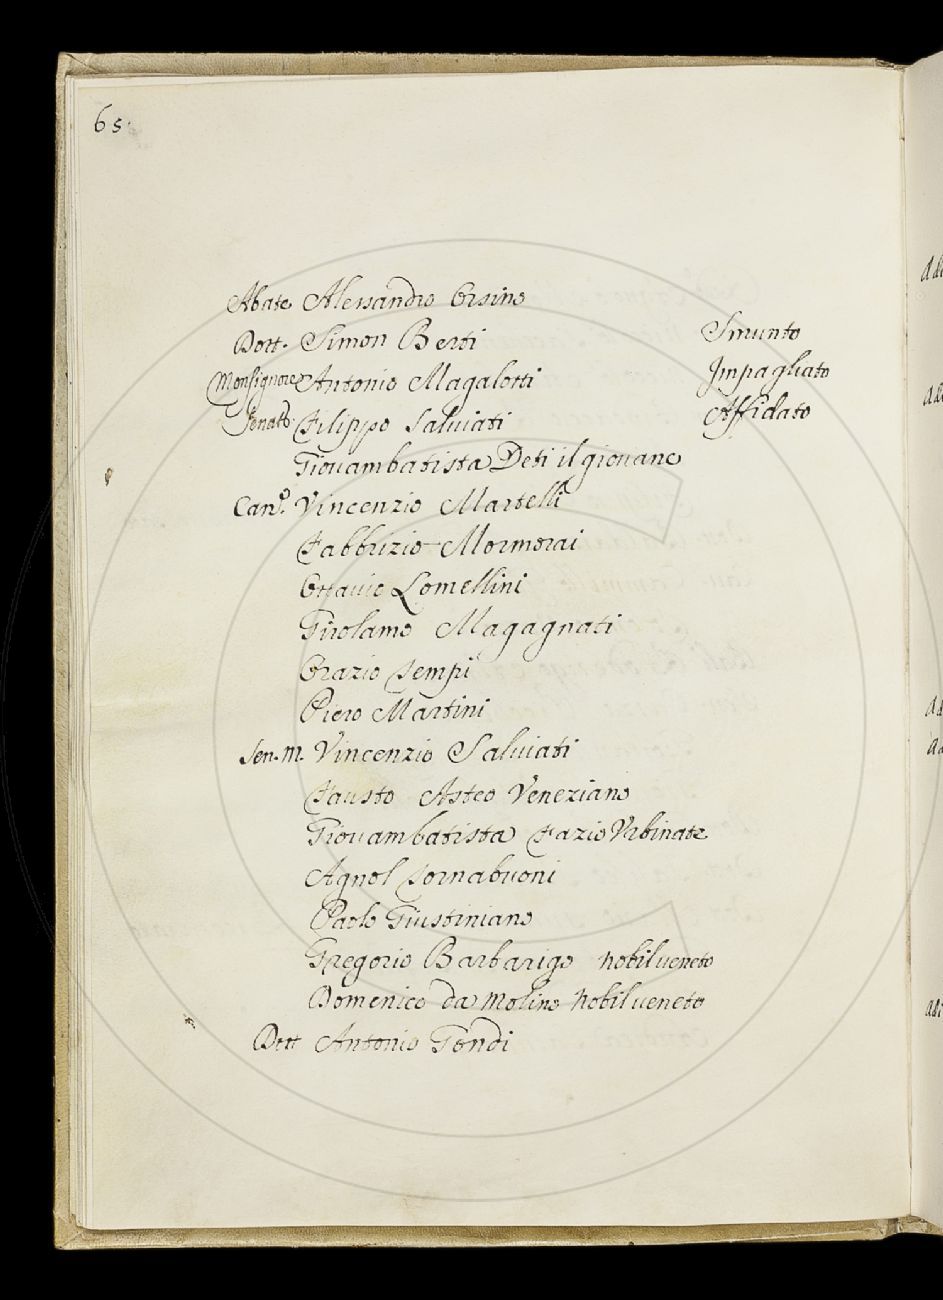 65.
Abate Alessandro Orsino
Dott. Simon Berti Smunto
Monsignore Antonio Magalotti Impagliato
Senatº. Filippo Salviati Affidato
Giouambatista Deti il giouane
Canº. Vincenzio Martelli
Fabbrizio Mormorai
Ottauio Lomellini
Girolamo Magagnati
Orazio Tempi
Piero Martini
Sen. M. Vincenzio Saluiati
Fausto Asteo Veneziano
Giouambatista Fazio Vrbinate
Agnol Tornabuoni
Paolo Giustiniano
Gregorio Barbarigo Nobil ueneto
Domenico da Molino Nobil ueneto
Dott Antonio Gondi